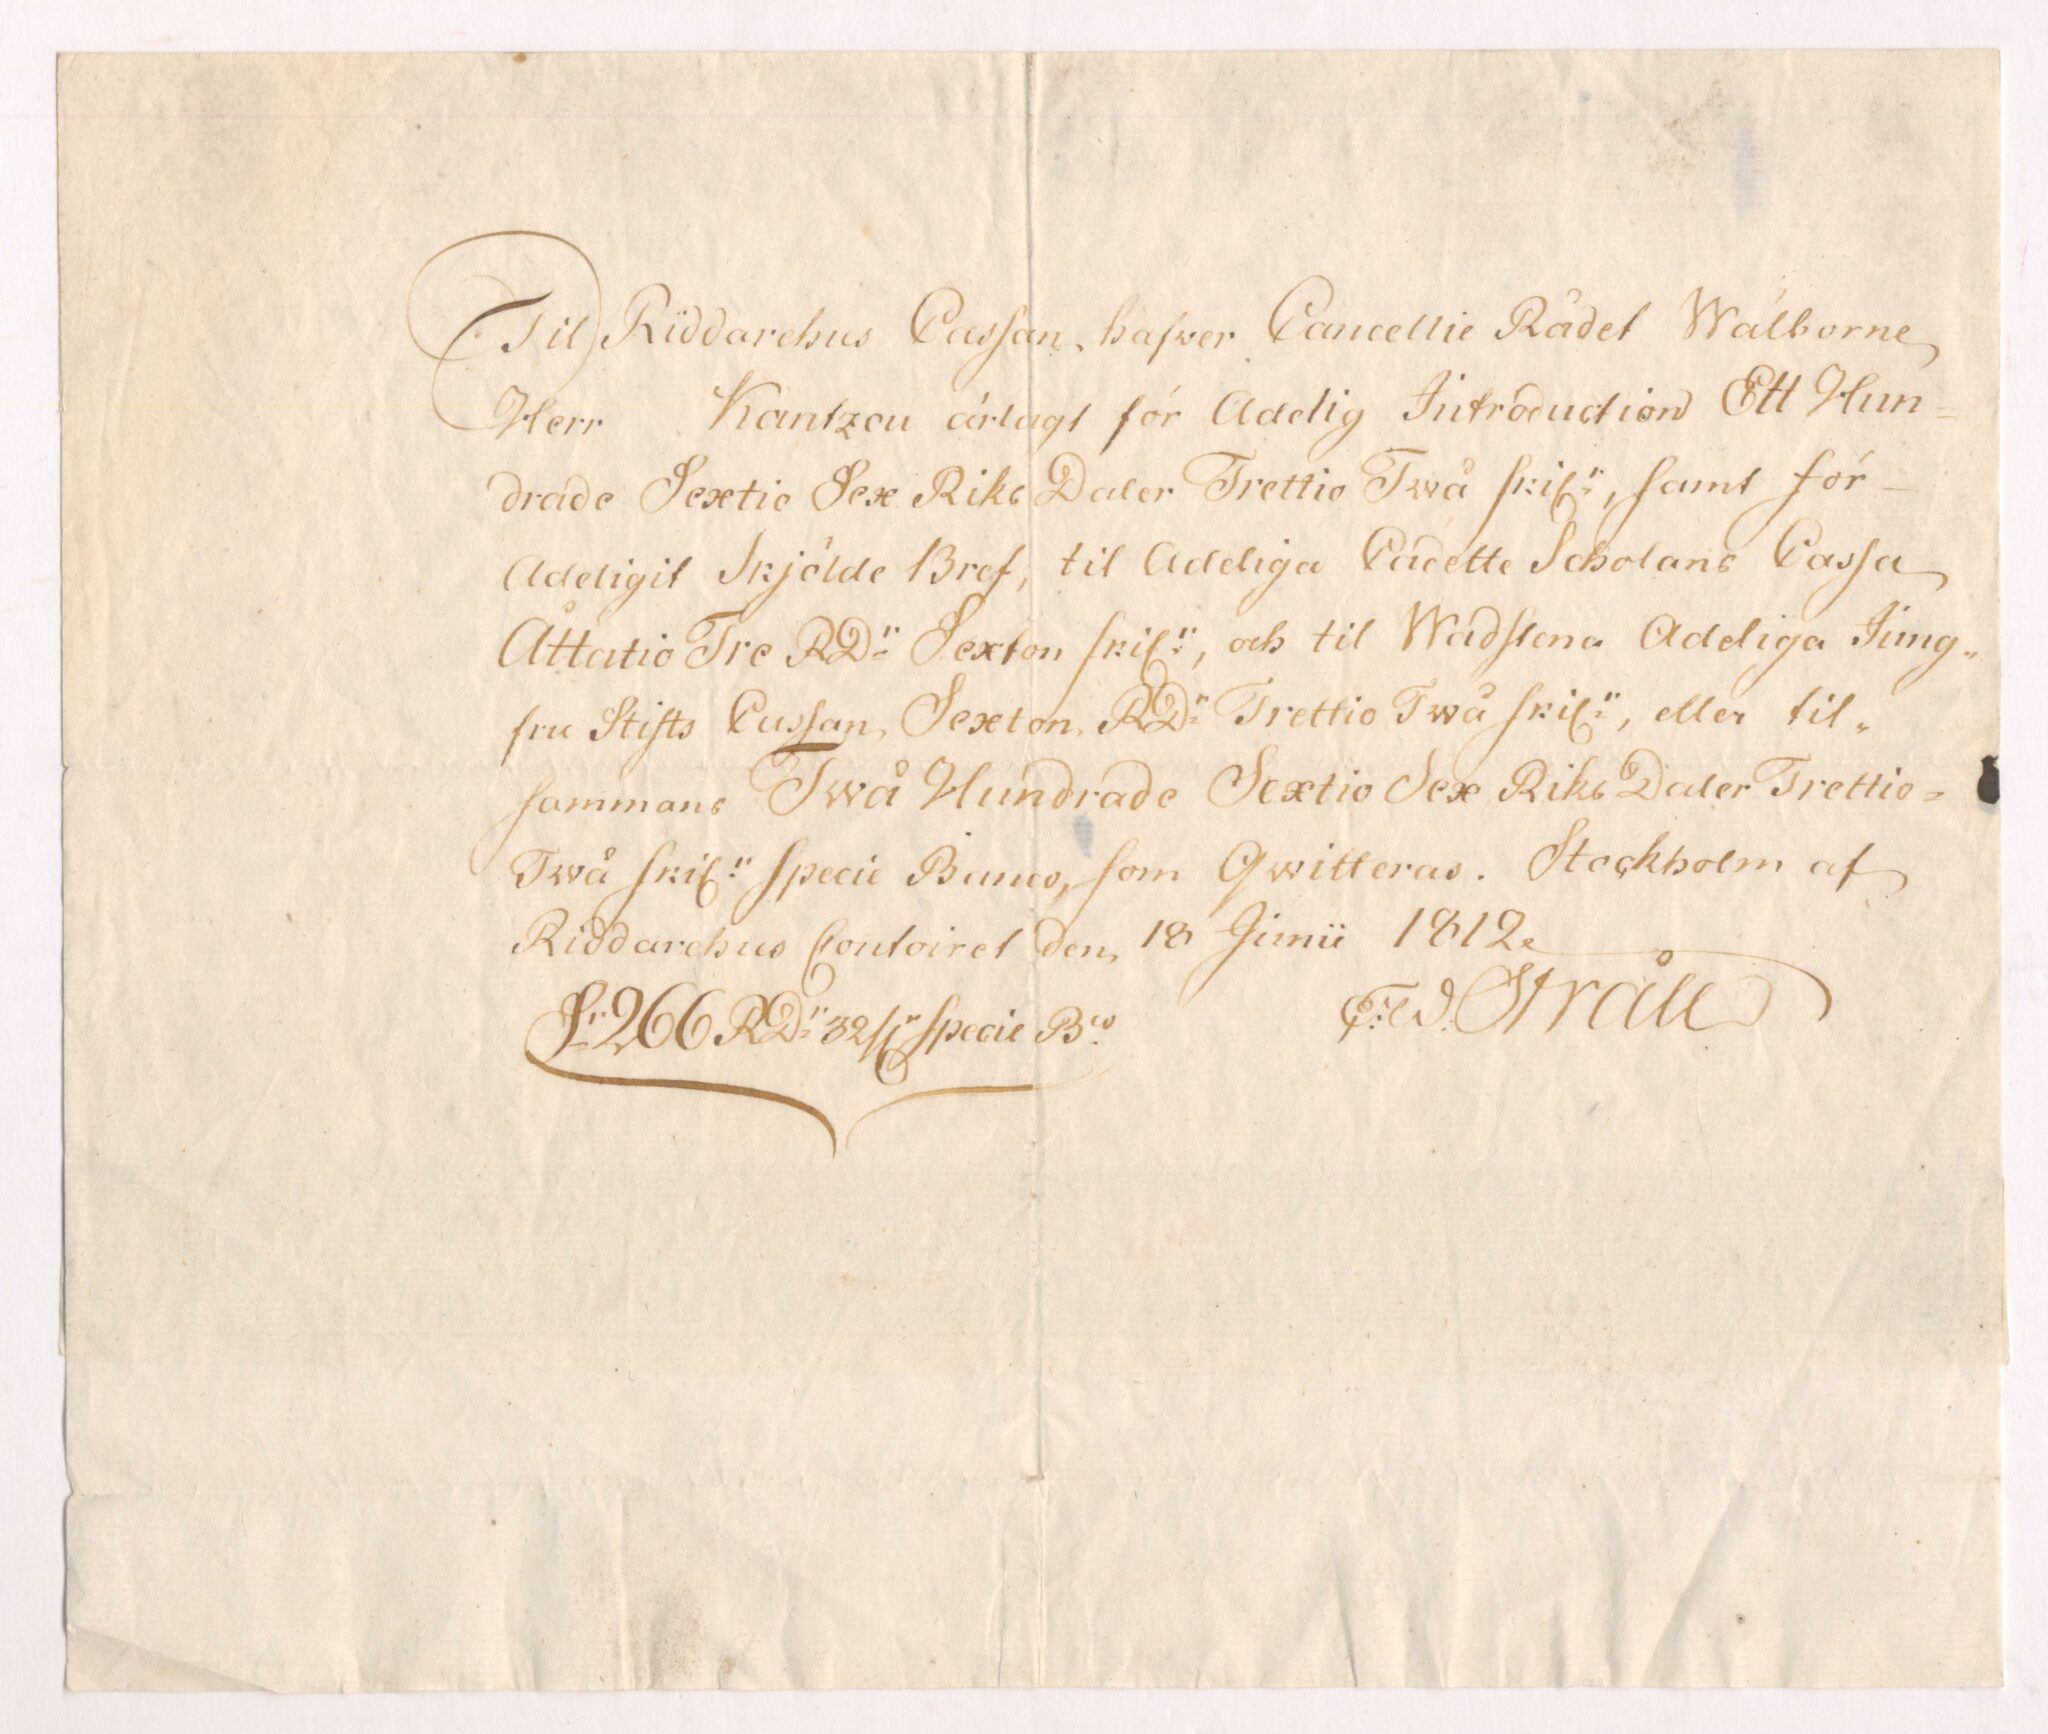 Til Riddarehus Cassan, hafver Cancellie Rådet Wälborne
Herr Kantzou ärlagt för Adelig Introduction Ett Hun-
drade Sextio Sex Riks Daler Trettio Twå skilr, samt för-
Adeligit Skjölde Bref, til Adeliga Cadette Scholans Cassa
Åttatio Tre RDr Sexton skilr, och til Wadstena Adeliga Jung-
fru Stifts Cassan, Sexton RDr Trettio Twå skilr, eller til-
sammans Twå Hundrade Sextio Sex Riks Daler Trettio-
Twå skilr Specie Banco, som Qwitteras. Stockholm af
Riddarehus Contoiret den 18 Junii 1812.
Sr 266 RDr 32 sr Specie Bco. Stråle